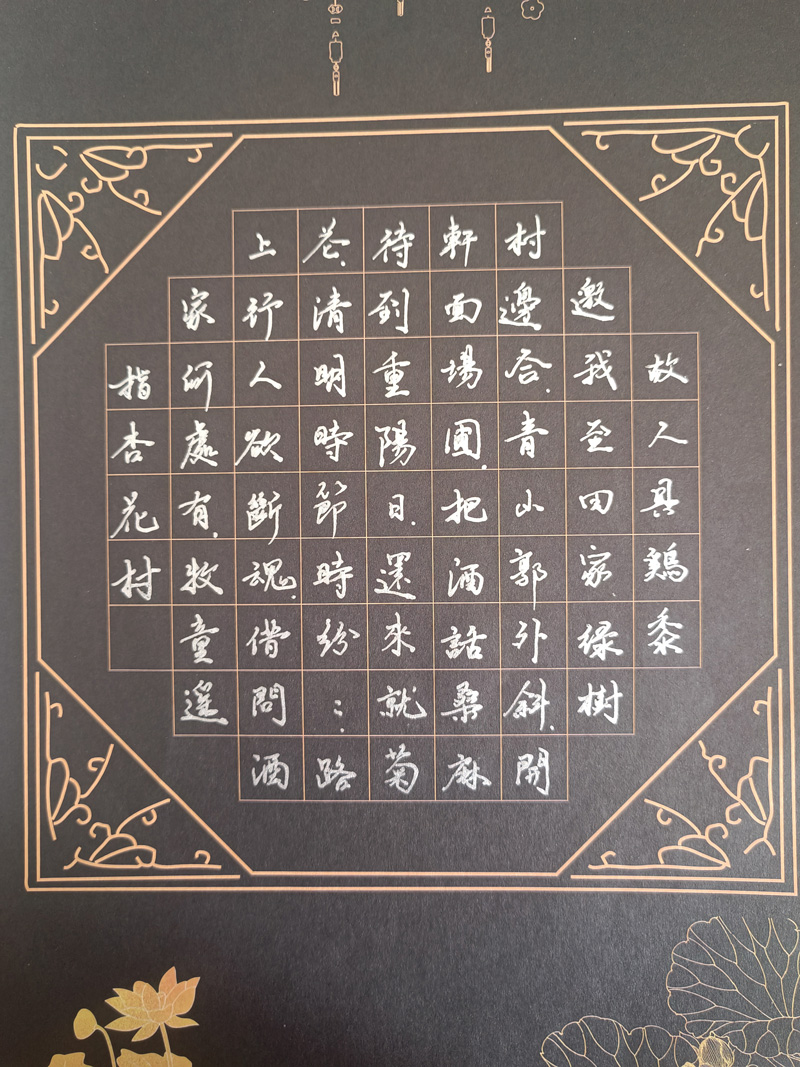 故人具鷄黍
邀我至田家、緑樹
村邊合、青山郭外斜、開
軒面場圃、把酒話桑麻
待到重陽日、還來就菊
花、清明時節時紛::路
上行人欲斷魂、借問酒
家何處有、牧童遥
指杏花村